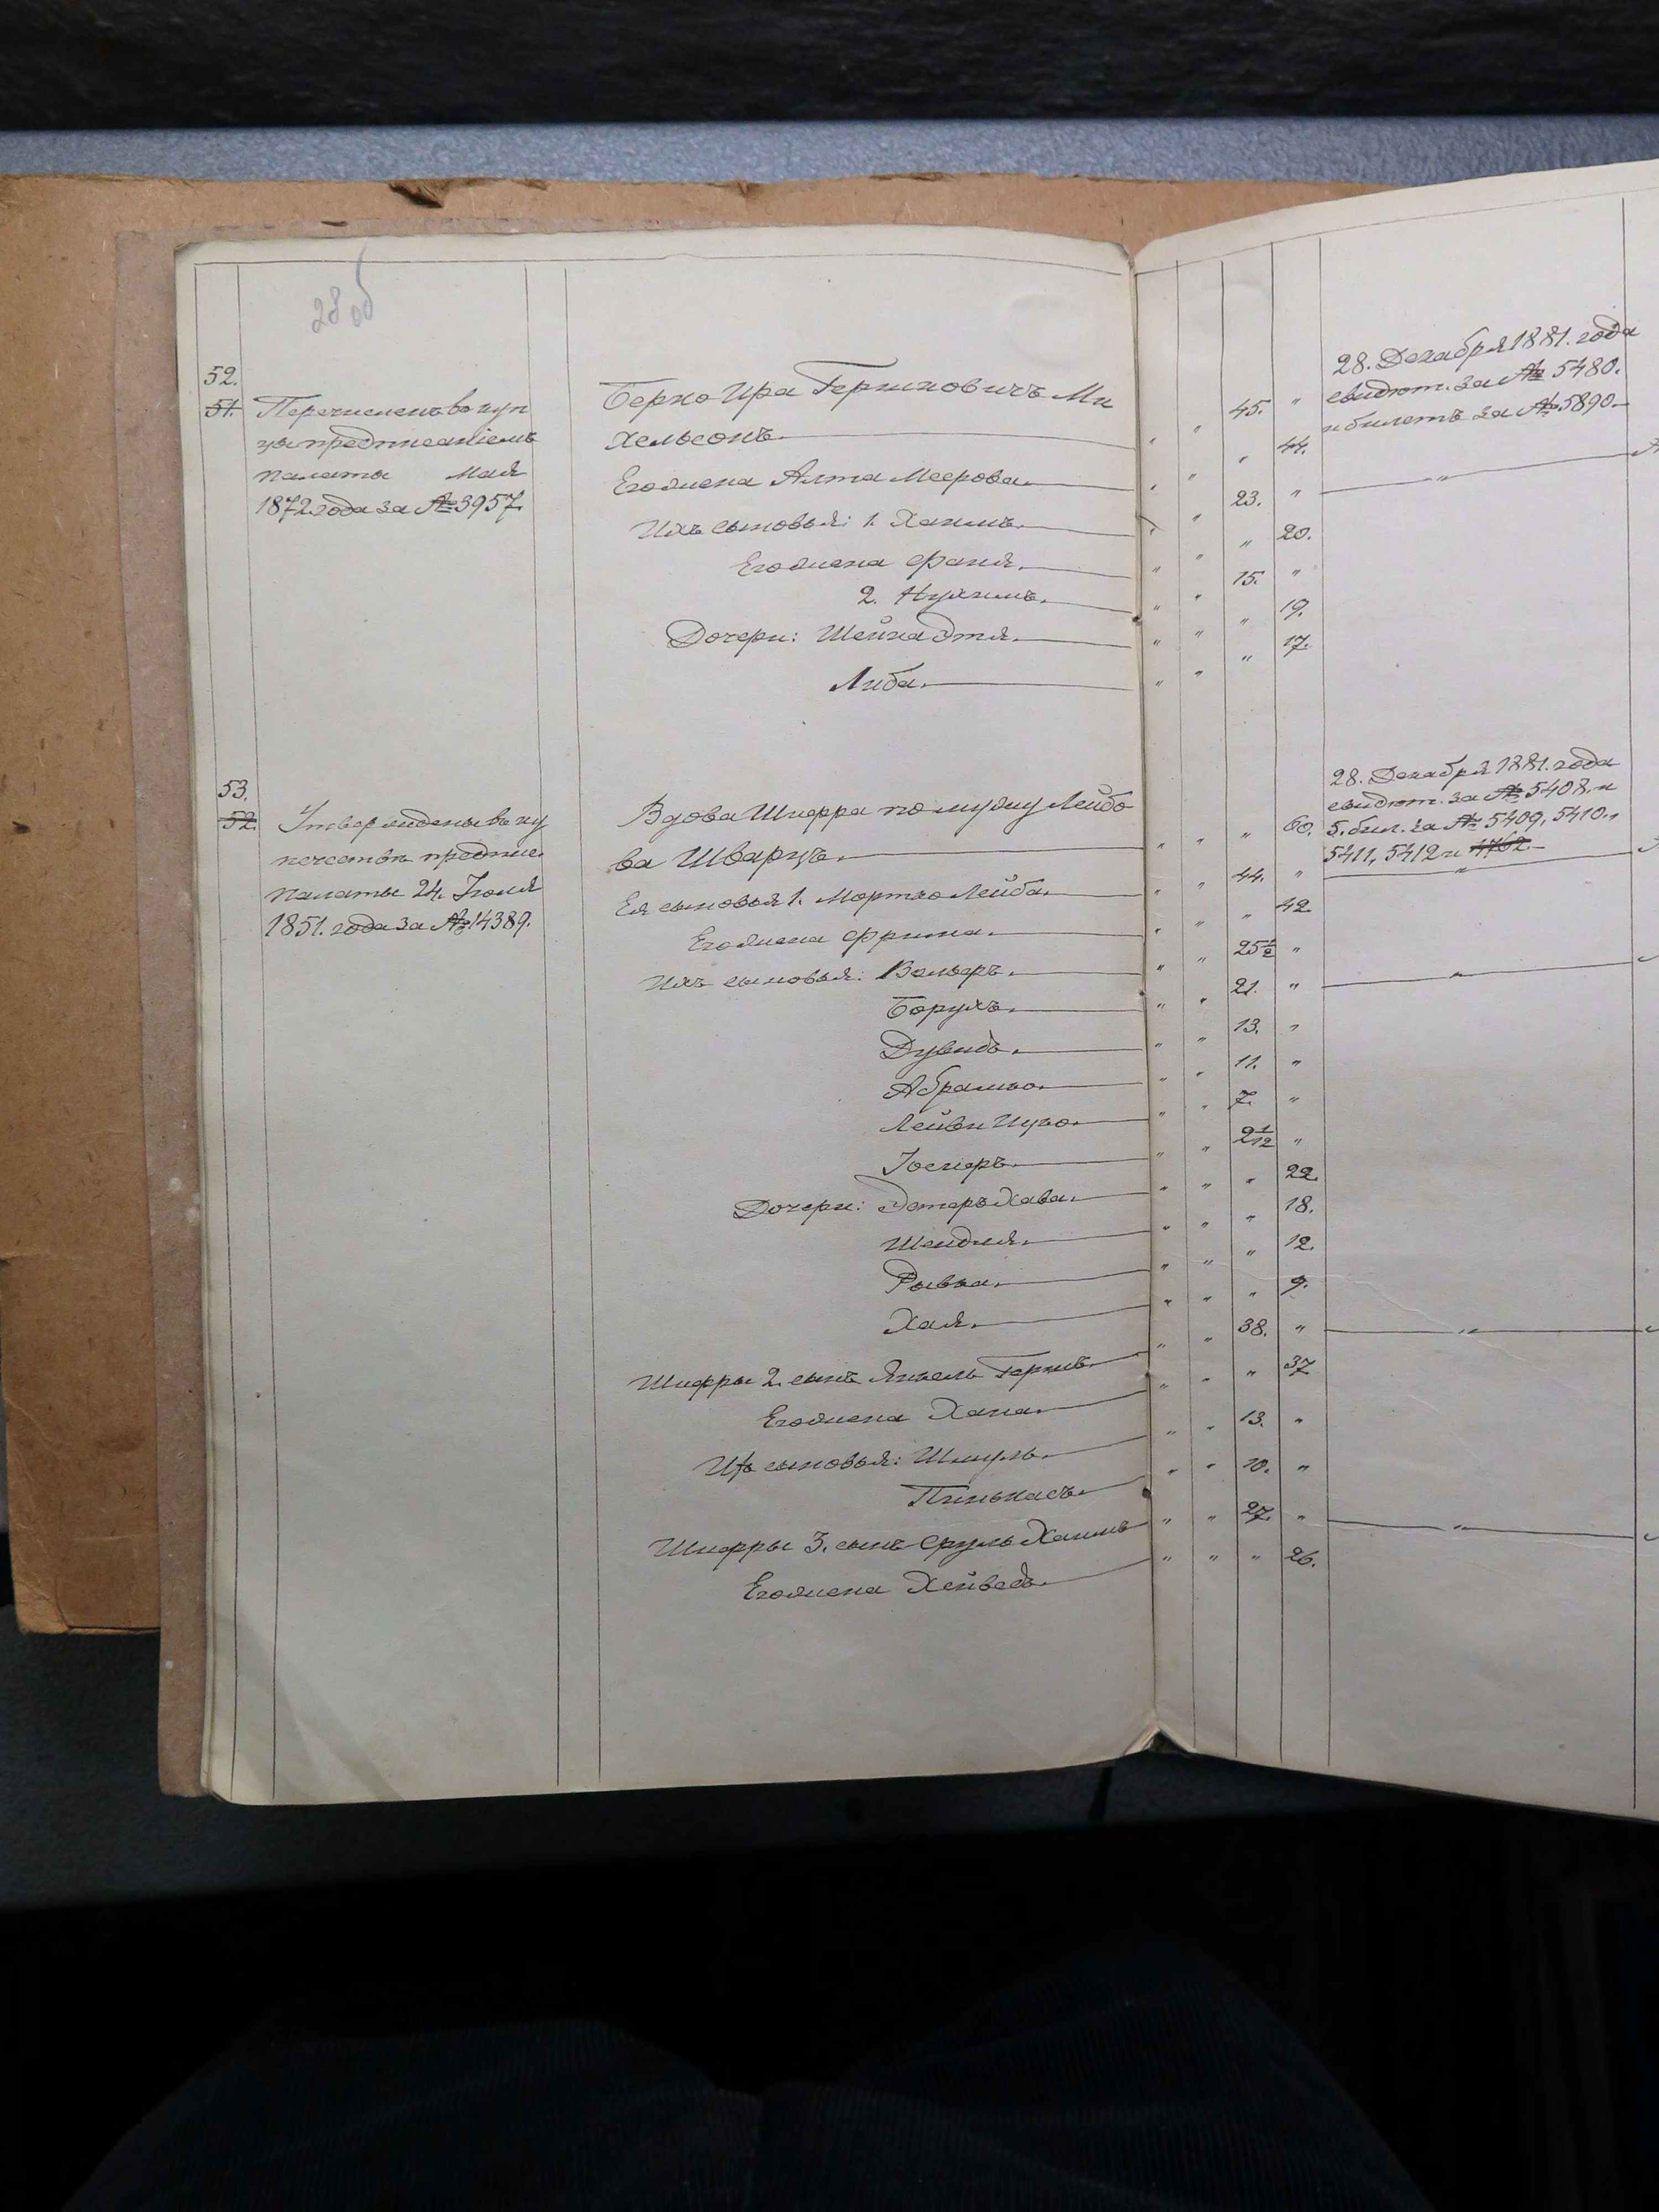 28 об
52.
51. Перечисленъ въ куп
цы предписаніемъ
палаты Мая
1872 года за № 3957.
Берко Ира Гершковичъ Ми
хельсонъ. " " 45. "
Его жена Алта Меерова. " " " 44.
Ихъ сыновья: 1. Хаимъ. " " 23. "
Его жена Фаня. " " " 20.
2. Нухимъ. " " 15. "
Дочери: Шейна Этля. " " " 19.
Либа. " " " 17.
28. Декабря 1881. года
свидѣт. за № 5480.
и билетъ за № 5890.
"
53.
52. Утверждены въ ку
печествѣ предпис.
палаты 24. Іюля
1851. года за № 14389.
Вдова Шифра по мужу Лейбо
ва Шварцъ. " " " 60.
Ея сыновья 1. Мортко Лейба. " " 44. "
Его жена Фрима. " " " 42.
Ихъ сыновья: Вольфъ. " " 25 1/2 "
Борухъ. " " 21. "
Дувидъ. " " 13. "
Абрамко. " " 11. "
Лейви Ицко. " " 7. "
Іосифъ. " " 2 1/12 "
Дочери: Эстеръ Хава. " " " 22.
Шендля. " " " 18.
Рывка. " " " 12.
Хая. " " " 9.
Шифры 2. сынъ Янкель Гершъ. " " 38. "
Его жена Хана. " " " 37
Ихъ сыновья: Шмуль. " " 13. "
Пинькасъ. " " 10. "
Шифры 3. сынъ Сруль Хаимъ " " 27. "
Его жена Хейведъ. " " " 26.
28. Декабря 1881. года
свидѣт. за № 5408. и
5. бил. за № 5409, 5410.,
5411, 5412 и
"
"
"
"